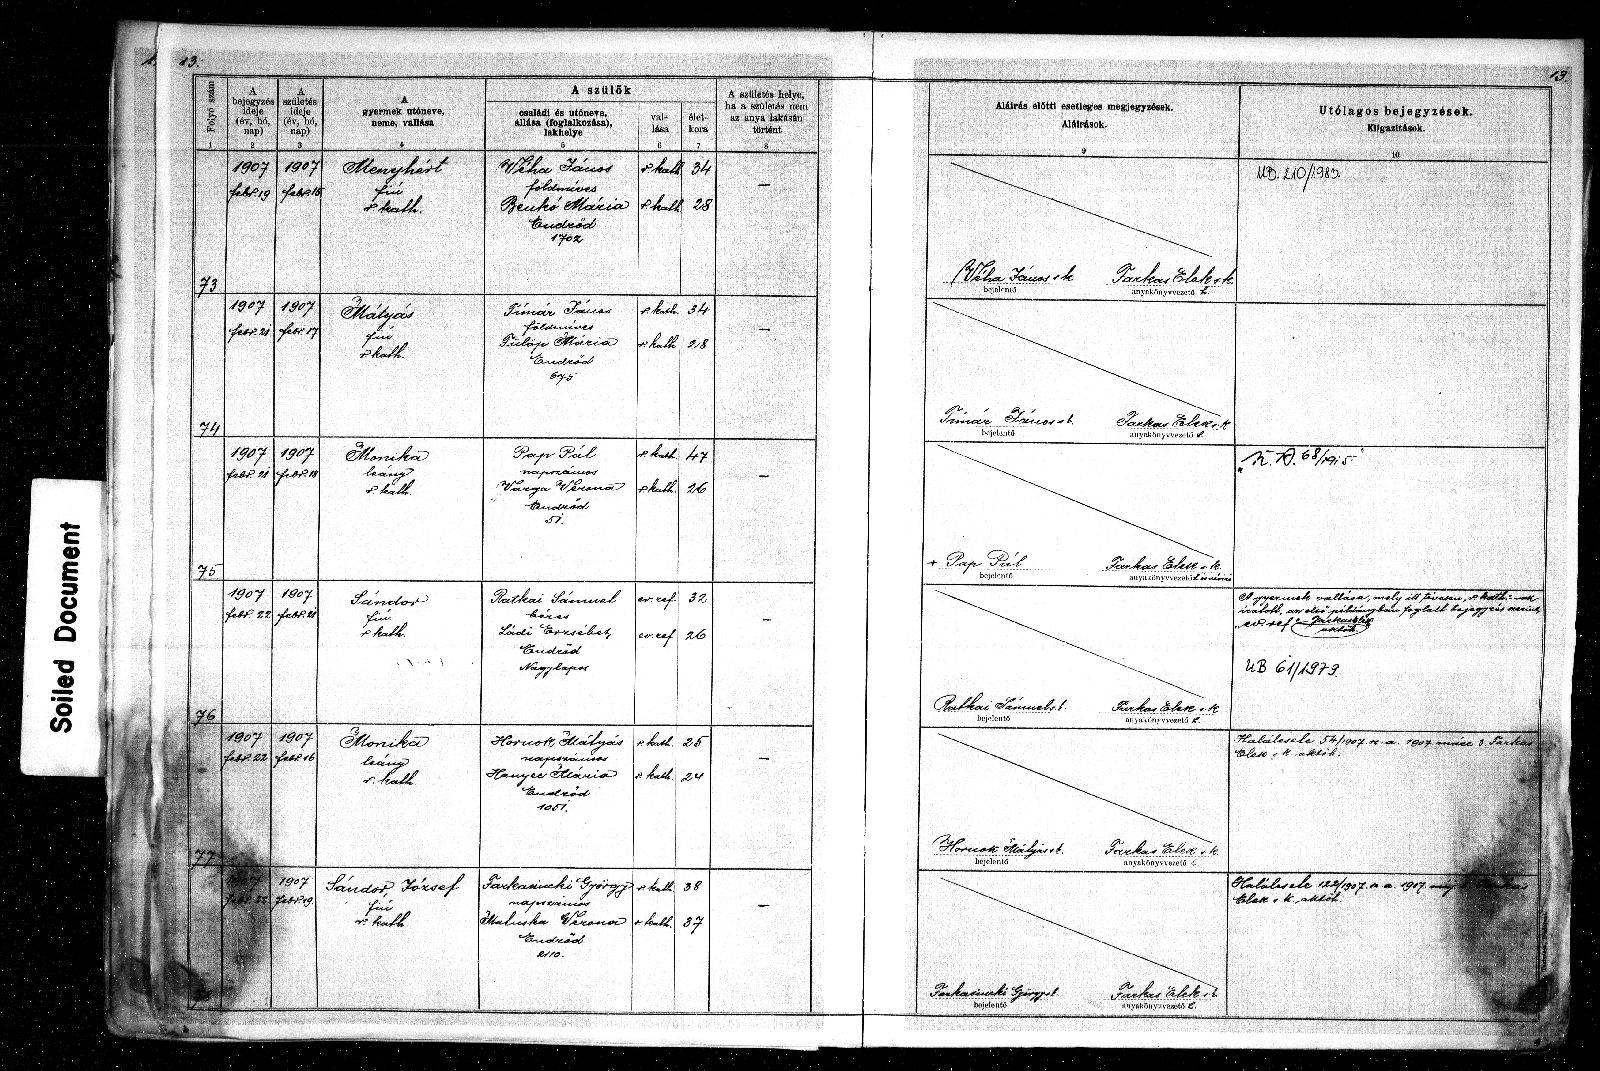 13.
13.
Folyó szám
A bejegyzés ideje (év, hó, nap)
A születés ideje (év, hó, nap)
A gyermek utóneve, neme, vallása
A szülők
családi és utóneve, állása (foglalkozása), lakhelye
vallása
életkora
A születés helye, ha a születés nem az anya lakásán történt
Aláírás előtti esetleges megjegyzések.
Aláírások.
Utólagos bejegyzések.
Kiigazítások.
1 2 3 4 5 6 7 8 9 10
73
1907 1907 Menyhért Véha János r. kath. 34 —
febr. 19 febr. 15 fiú földmives
r. kath. Benkó Mária r. kath. 28
Endrőd
1702
UB. 210/1983.
Véha János s. k. Farkas Elek s. k.
bejelentő anyakönyvvezető h.
74
1907 1907 Mátyás Timár János r. kath. 34 —
febr. 21 febr. 17 fiú földmives
r. kath. Fülöp Mária r. kath. 28
Endrőd
675
Timár János s. k. Farkas Elek s. k.
bejelentő anyakönyvvezető h.
75
1907 1907 Monika Pap Pál r. kath. 47 —
febr. 21 febr. 18 leány napszámos
r. kath. Varga Verona r. kath. 26
Endrőd
51.
+ Pap Pál Farkas Elek s. k.
bejelentő anyakönyvvezető
76
1907 1907 Sándor Ratkai Sámuel ev. ref. 32 —
febr. 22 febr. 21 fiú
r. kath. Ládi Erzsébet ev. ref. 26
Endrőd
Nagylapos
A gyermek vallása, mely itt tévesen „r. kath."-nak
iratott, az első példányban foglalt bejegyzés szerint
„ev. ref."
UB 61/1979.
Ratkai Sámuel s. k. Farkas Elek s. k.
bejelentő anyakönyvvezető h.
77
1907 1907 Monika Hornok Mátyás r. kath. 25 —
febr. 22 febr. 16 leány napszámos
r. kath. Hanyec Mária r. kath. 24
Endrőd
1051.
Halálesete 54/1907. a. 1907. márc. 3. Farkas
Elek s. k. aktóh.
Hornok Mátyás s. k. Farkas Elek s. k.
bejelentő anyakönyvvezető
78
1907 1907 Sándor, József Farkasinszki György r. kath. 38 —
febr. 22 febr. 19 fiú napszámos
r. kath. Maluska Verona r. kath. 37
Endrőd
2110.
Halálesete 122/1907. a. 1907.
Elek s. k. aktóh.
Farkasinszki György s. k. Farkas Elek s. k.
bejelentő anyakönyvvezető h.
Soiled Document